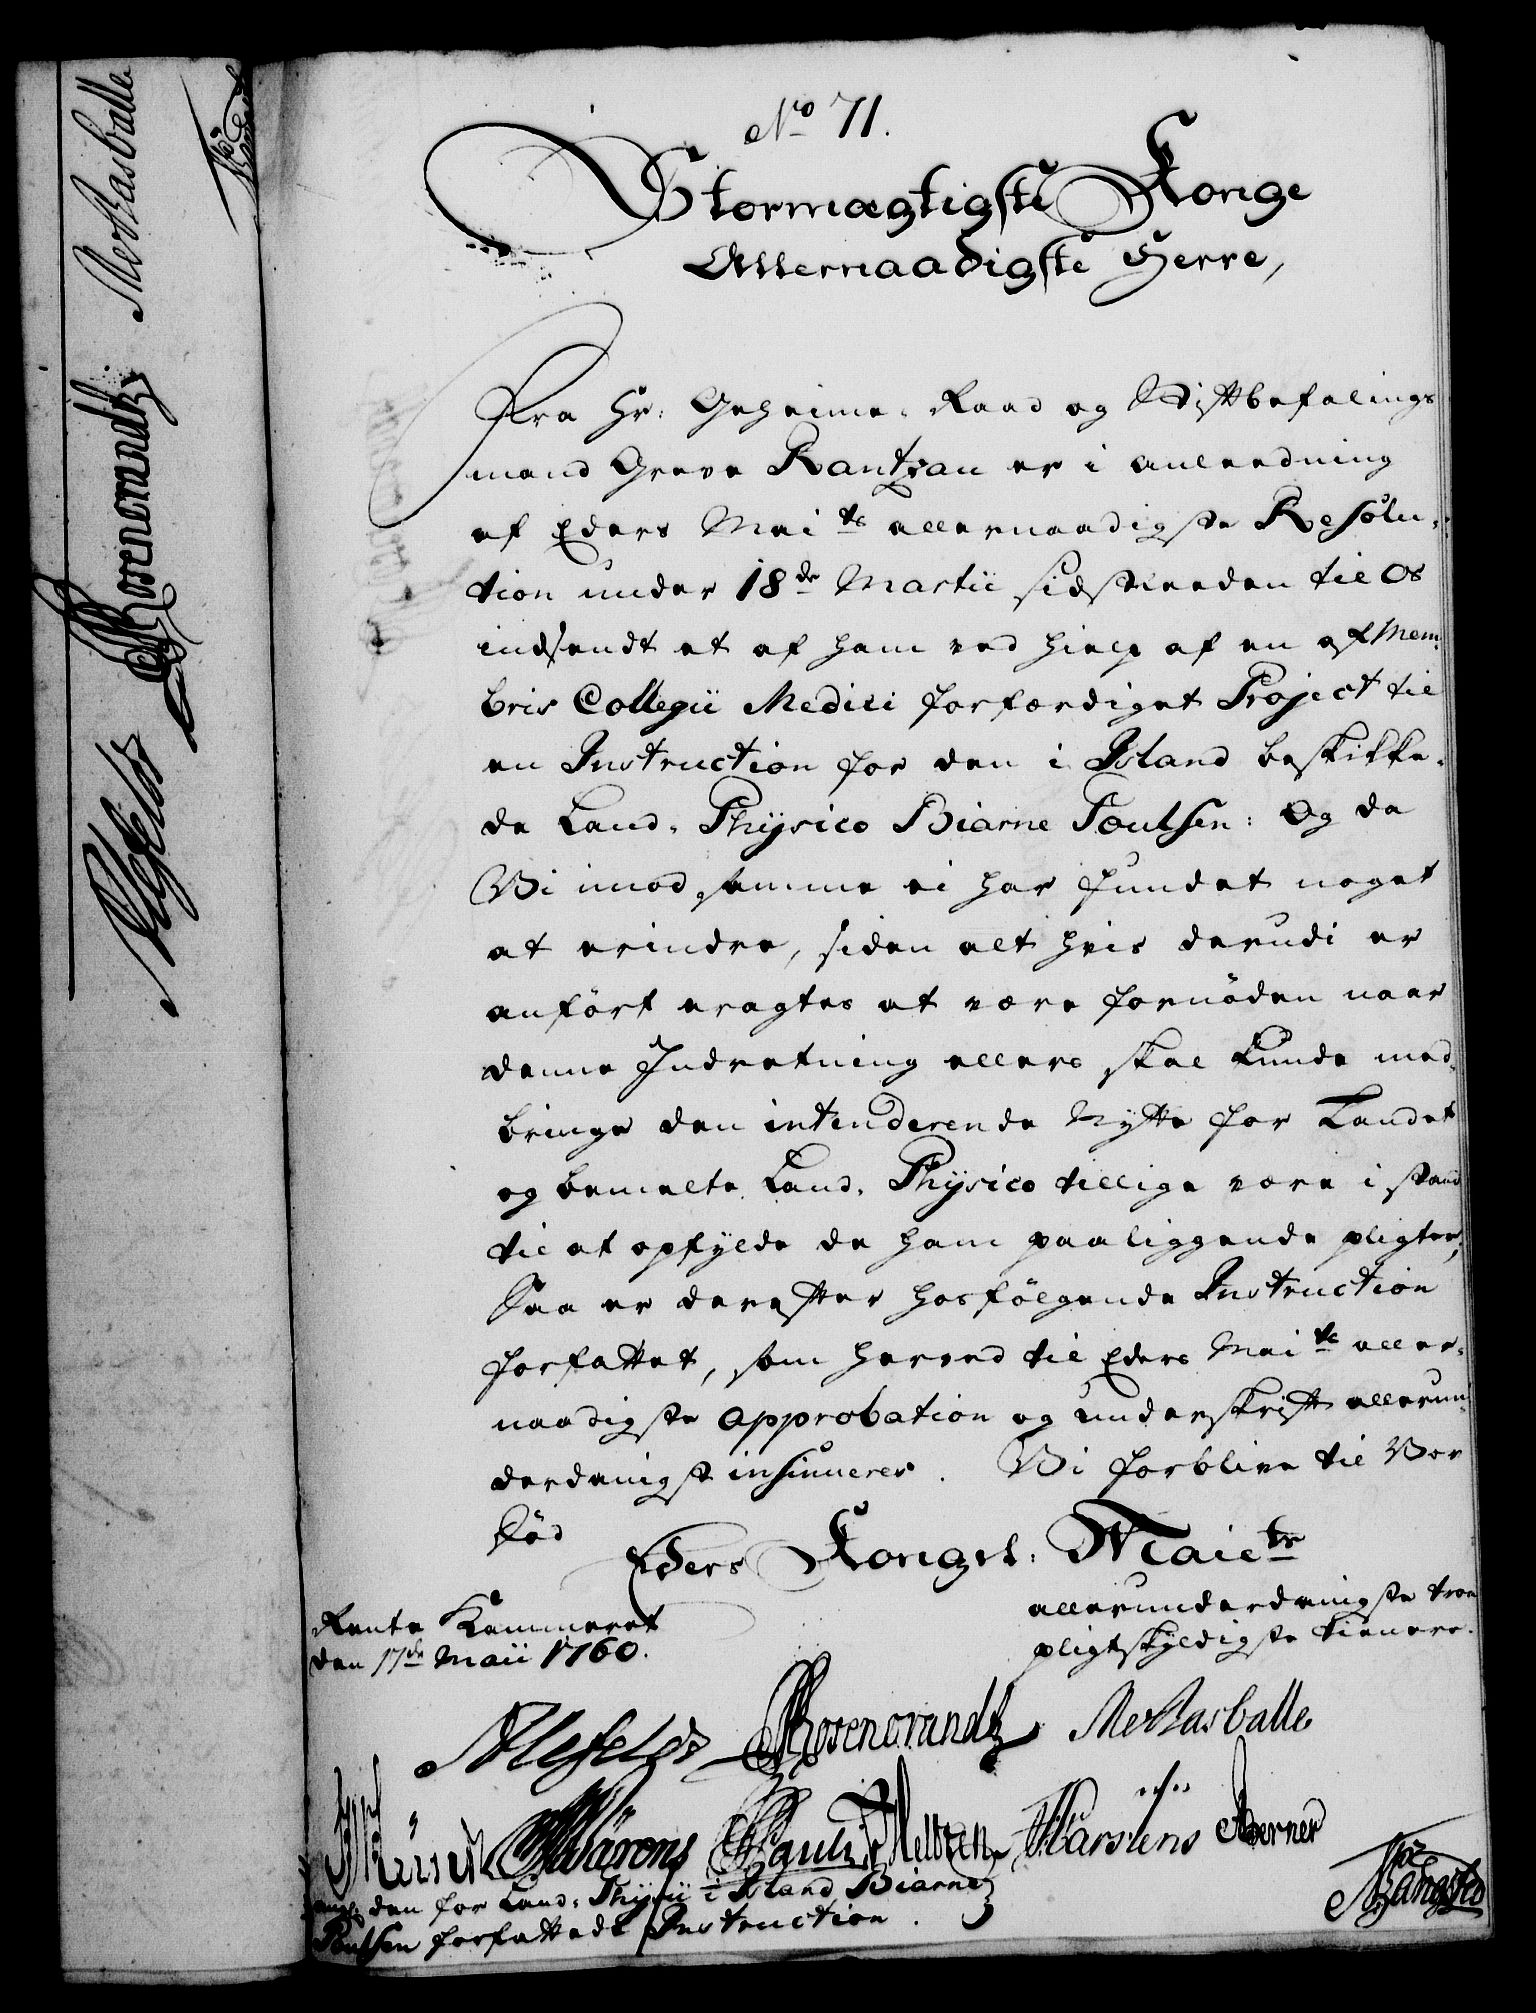 No 71.
Stormægtigste Konge
Allernaadigste Herre,
Fra Hr: Geheime-Raad og Stiftbefalings
mand Greve Rantzau er i anleedning
af Eders Maits allernaadigste Resolu-
tion under 18de Martii sidstleeden til Os
indsendt et af ham ved hielp af en af Mem-
bris Collegii Medici forfærdiget Project til
en Instruction for den i Island beskikke-
de Land-Physico Biarne Poulsen: Og da
Vi imod samme ei har fundet noget
at erindre, siden alt hvis derudi er
anført eragtes at være fornøden naar
denne Indretning ellers skal kunde med-
bringe den intenderende Nytte for Landet
og bemelte Land-Physico tillige være i stand
til at opfylde de ham paaliggende pligter;
Saa er derefter hosfølgende Instruction
forfattet, som herved til Eders Maits aller-
naadigste approbation og underskrift allerun-
derdanigst insinueres. Vi forblive til Vor
Død
Eders Kongel: Maiets
allerunderdanigste troe
pligtskyldigste tienere.
Rente Kammeret
den 17de Maii 1760.
Alefeldt Rosencrandtz
Wärens Pauli Heltzen Karstens Berner
ang: den for Land-Physici i Island Biarne
Poulsen forfattede Instruction.
Bangsted